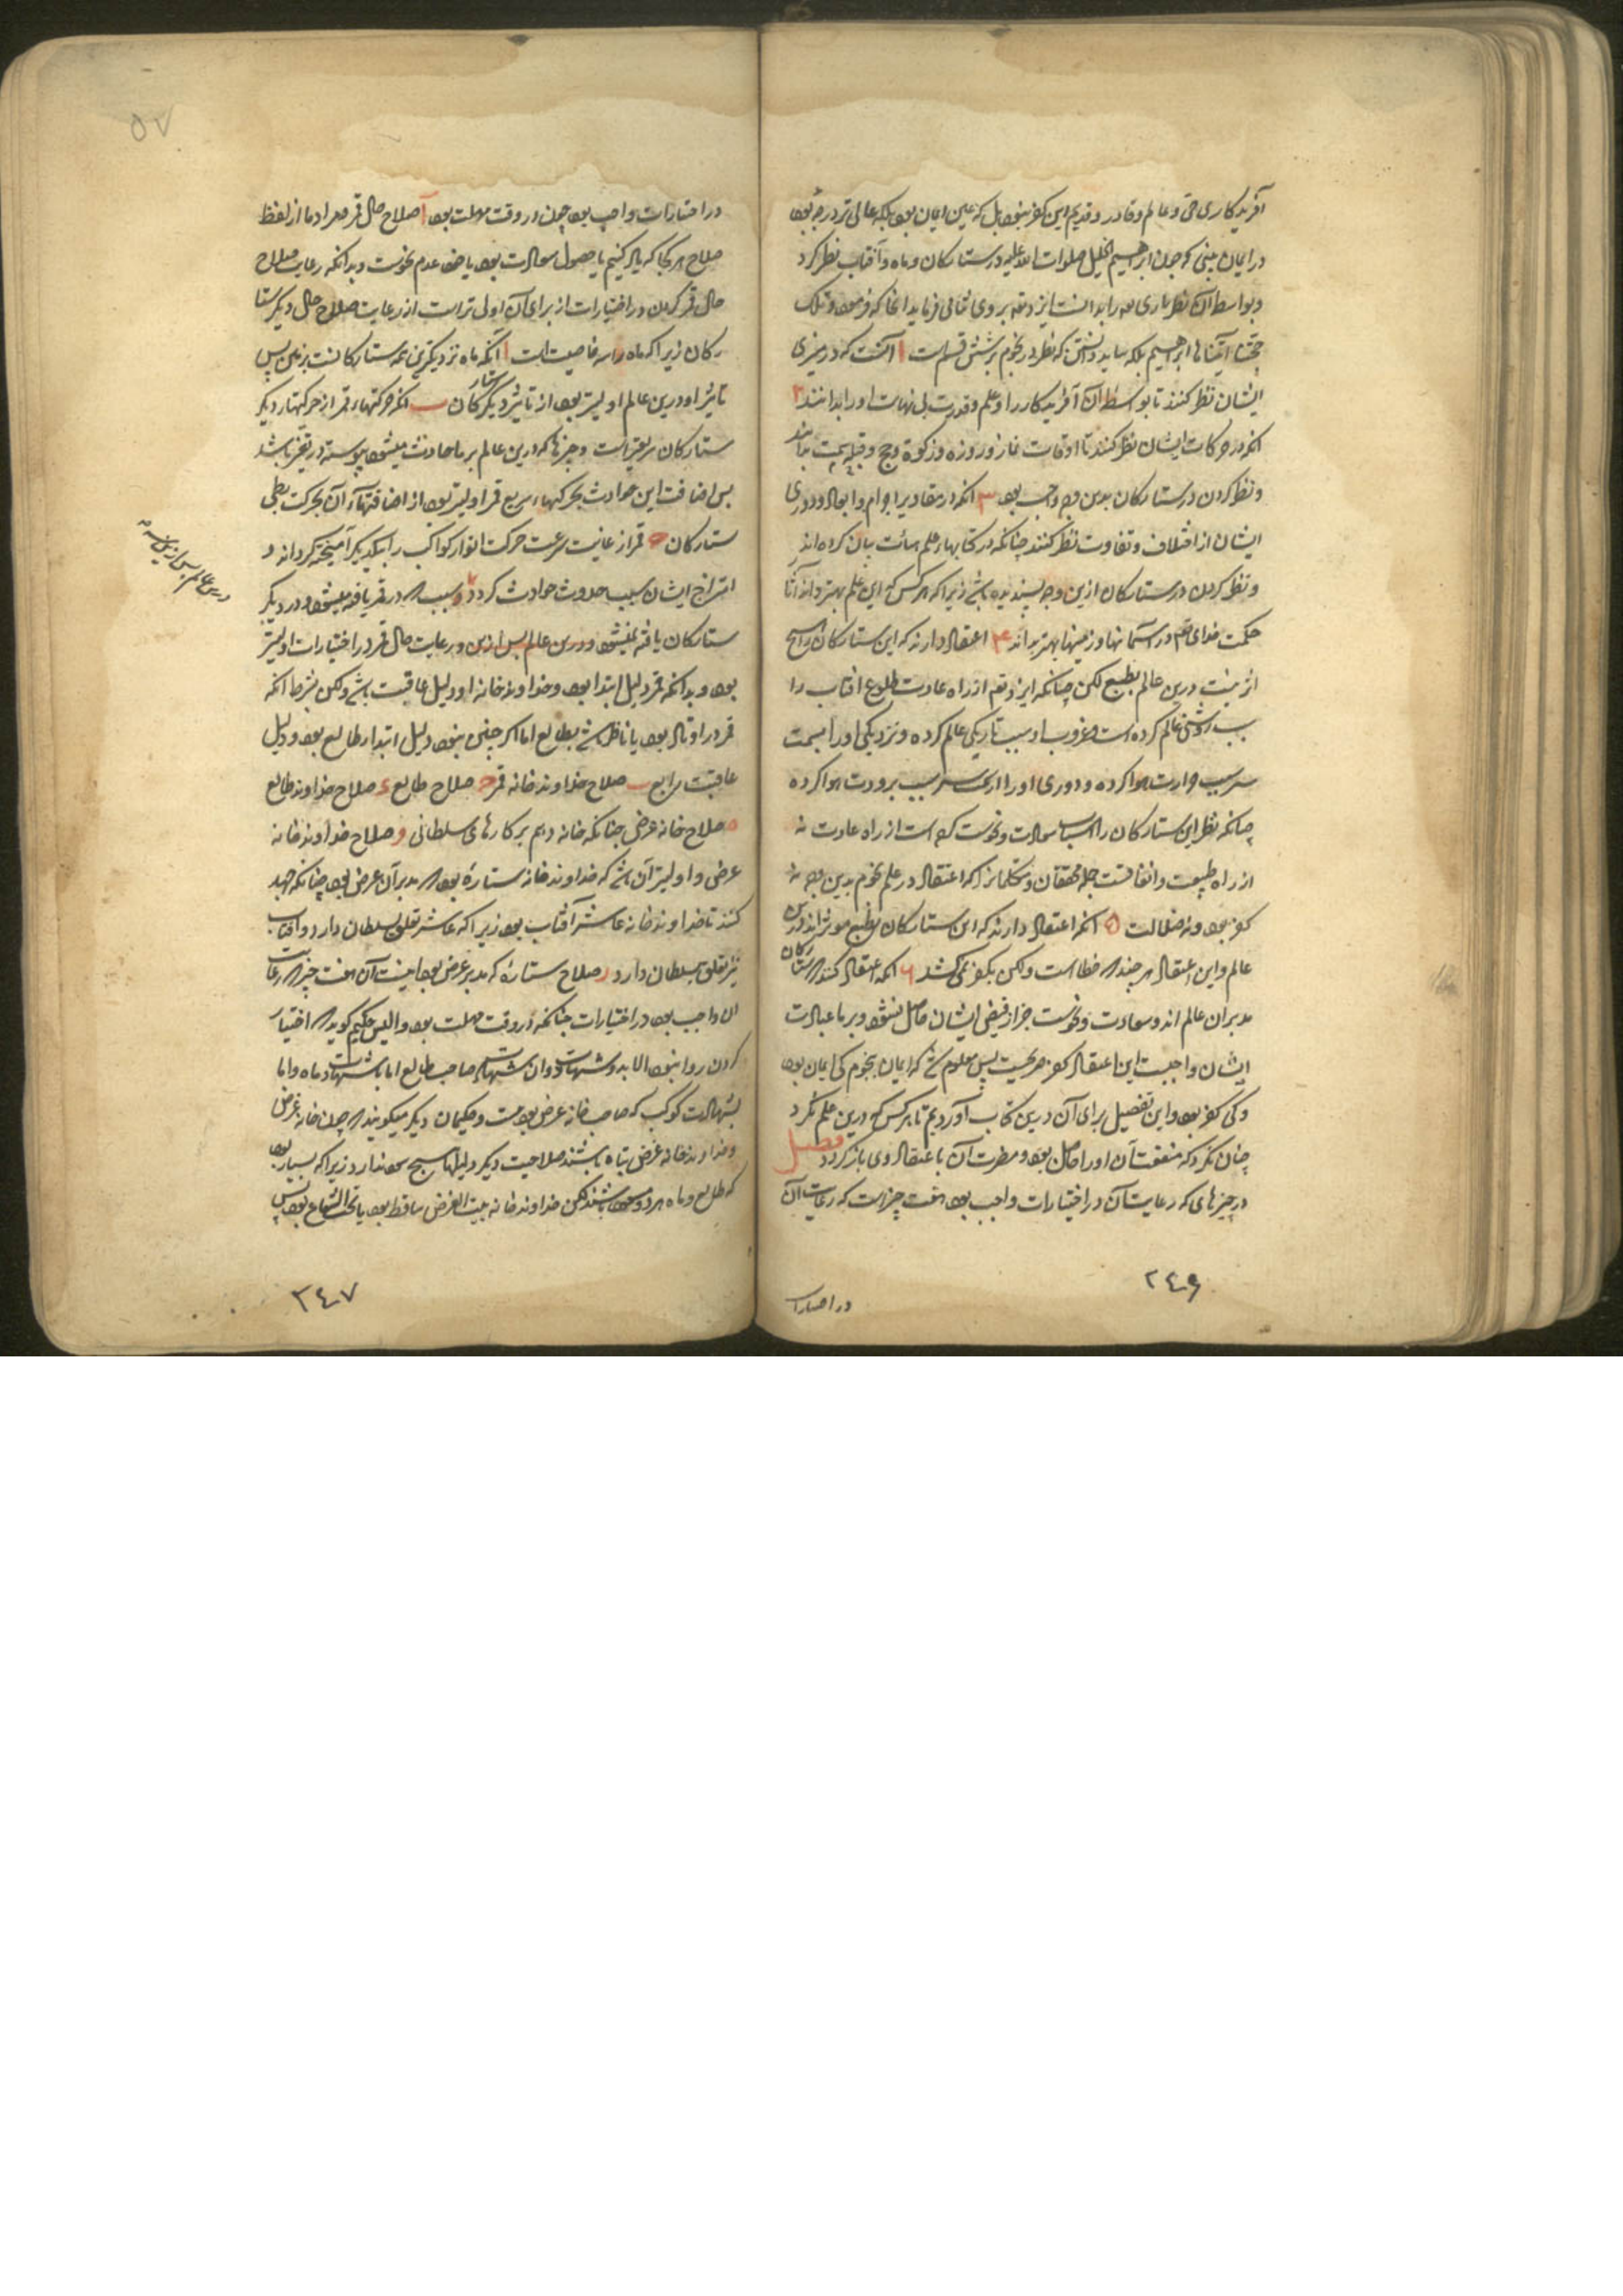 آفریدکاری حی و عالم و قادر و قدیم این کفر نبود بل که عین ایمان بود بلکه عالی تر درجهٔ بود
در ایمان نبینی که چون ابرهیم الخلیل صلوات الله علیه در ستارکان و ماه و آفتاب نظر کرد
و بواسطه آن نظر باری را بدانست ایزد تعالی بر وی ثنا فرماید انجا که فرمود و تلک
حجتنا آتیناها ابراهیم بلکه بباید دانستن که نظر در نجوم بر شش قسم است ا آنست که در
ایشان نظر کنند تا بواسطه آن آفریدکار را و علم و قدرت بی نهایت او را بدانند ۲
انکه در حرکات ایشان نظر کنند تا اوقات نماز و روزه و زکوة و حج و قبله بدانند
و نظر کردن در ستارکان بدین وجه واجب بود ۳ انکه در مقادیر اجرام و ابعاد و دوری
ایشان از اختلاف و تفاوت نظر کنند چنانکه در کتابهاء علم هیأت بیان کرده اند
و نظر کردن در ستارکان ازین وجه پسندیده باشد زیرا که هر کس که این علم بهتر داند آثار
حکمت خدای تعم در آسمانها و زمینها بهتر بداند ۴ اعتقاد دارند که این ستارکان را هیچ
اثر نیست درین عالم بطبع لکن چنانکه ایزد تعم از راه عادت طلوع افتاب را
سبب روشنی عالم کرده است و غروب او سبب تاریکی عالم کرده و نزدیکی او را بسمت
سر سبب حرارت هوا کرده و دوری او را از سمت سر سبب برودت هوا کرده
چنانکه نظر این ستارکان را اسباب سعادت و نحوست کرده است از راه عادت نه
از راه طبیعت و اتفاقست جمله محققان و متکلمانرا که اعتقاد در علم نجوم بدین وجه نه
کفر بود و نه ضلالت ۵ انکه اعتقاد دارند که این ستارکان بطبع موثراند درین
عالم و این اعتقاد هر چند که خطا است ولکن بکفر نمی کشد ۶ انکه اعتقاد کنند که ستارکان
مدبران عالم اند و سعادت و نحوست جز از فیض ایشان حاصل نشود و بر ما عبادت
ایشان واجبست این اعتقاد کفر صریحست پس معلوم شد که ایمان بنجوم کی ایمان بود
و کی کفر بود و این تفصیل برای آن درین کتاب آوردیم تا هر کس که درین علم نکرد
چنان نکرد که منفعت آن او را حاصل بود و مضرت آن با اعتقاد وی باز کردد فصل
در چیزهای که رعایت آن در اختیارات واجب بود هفت چیز است که رعایت آن
در اختیارات
۲۴۶
۵۷
در اختیارات واجب بود چون در وقت مهلت بود آ صلاح حال قمر و مراد ما از لفظ
صلاح هر کجا که یاد کنیم یا حصول سعادت بود یا خود عدم نحوست و بدانکه رعایت صلاح
حال قمر کردن در اختیارات از برای آن اولی تر است از رعایت صلاح حال دیکر ستا
رکان زیرا که ماه را سه خاصیت است ا آنکه ماه نزدیکترین همه ستارکانست بزمین پس
تاثیر او درین عالم اولیتر بود از تاثیر دیکر ستارکان ب انکه حرکتهاء قمر از حرکتهاء دیکر
ستارکان سریعتر است و چیزها که درین عالم بر ما حادث میشود پیوسته در تغیر باشد
پس اضافت این حوادث بحرکتهاء سریع قمر اولیتر بود از اضافتهاء آن بحرکت بطی
ستارکان ج قمر از غایت سرعت حرکت انوار کواکب را بیکدیکر آمیخته کرداند و
امتزاج ایشان سبب حدوث حوادث کردد و این سبب که در قمر یافته میشود و در دیکر
ستارکان یافته نمیشود و درین عالم پس ازین و رعایت حال قمر در اختیارات اولیتر
بود و بدانکه قمر دلیل ابتدا بود و خداوند خانه او دلیل عاقبت باشد ولکن بشرط انکه
قمر در اوتاد بود یا ناظر باشد بطالع اما اکر چنین نبود دلیل ابتدا طالع بود و دلیل
عاقبت رابع ب صلاح خداوند خانه قمر ج صلاح طالع د صلاح خداوند طالع
ه صلاح خانه غرض چنانکه خانه دهم بر کارهای سلطانی و صلاح خداوند خانه
غرض و اولیتر آن باشد که خداوند خانه ستارهٔ بود که مدبر آن غرض بود چنانکه جهد
کنند تا خداوند خانه عاشر آفتاب بود زیرا که عاشر تعلق بسلطان دارد و افتاب
نیز تعلق بسلطان دارد ز صلاح ستارهٔ که مدبر غرض بود اینست آن هفت چیز که رعایت
ان واجب بود در اختیارات چنانکه در وقت مهلت بود و والیس حکیم کوید که اختیار
کردن روا نبود الا بدو شهادت و آن شهادت صاحب طالع اما بشهادت ماه و اما
بشهادت کوکب که صاحب خانه غرض بود و حکیمان دیکر میکویند که چون خانه غرض
و خداوند خانه غرض تباه باشند صلاحیت دیکر دلیلها هیچ سود ندارد زیرا که بسیار بود
که طالع و ماه هر دو مسعود باشند لکن خداوند خانه بیت الغرض ساقط بود یا تحت الشعاع بود پس
درین عالم پس ازین
۲۴۷